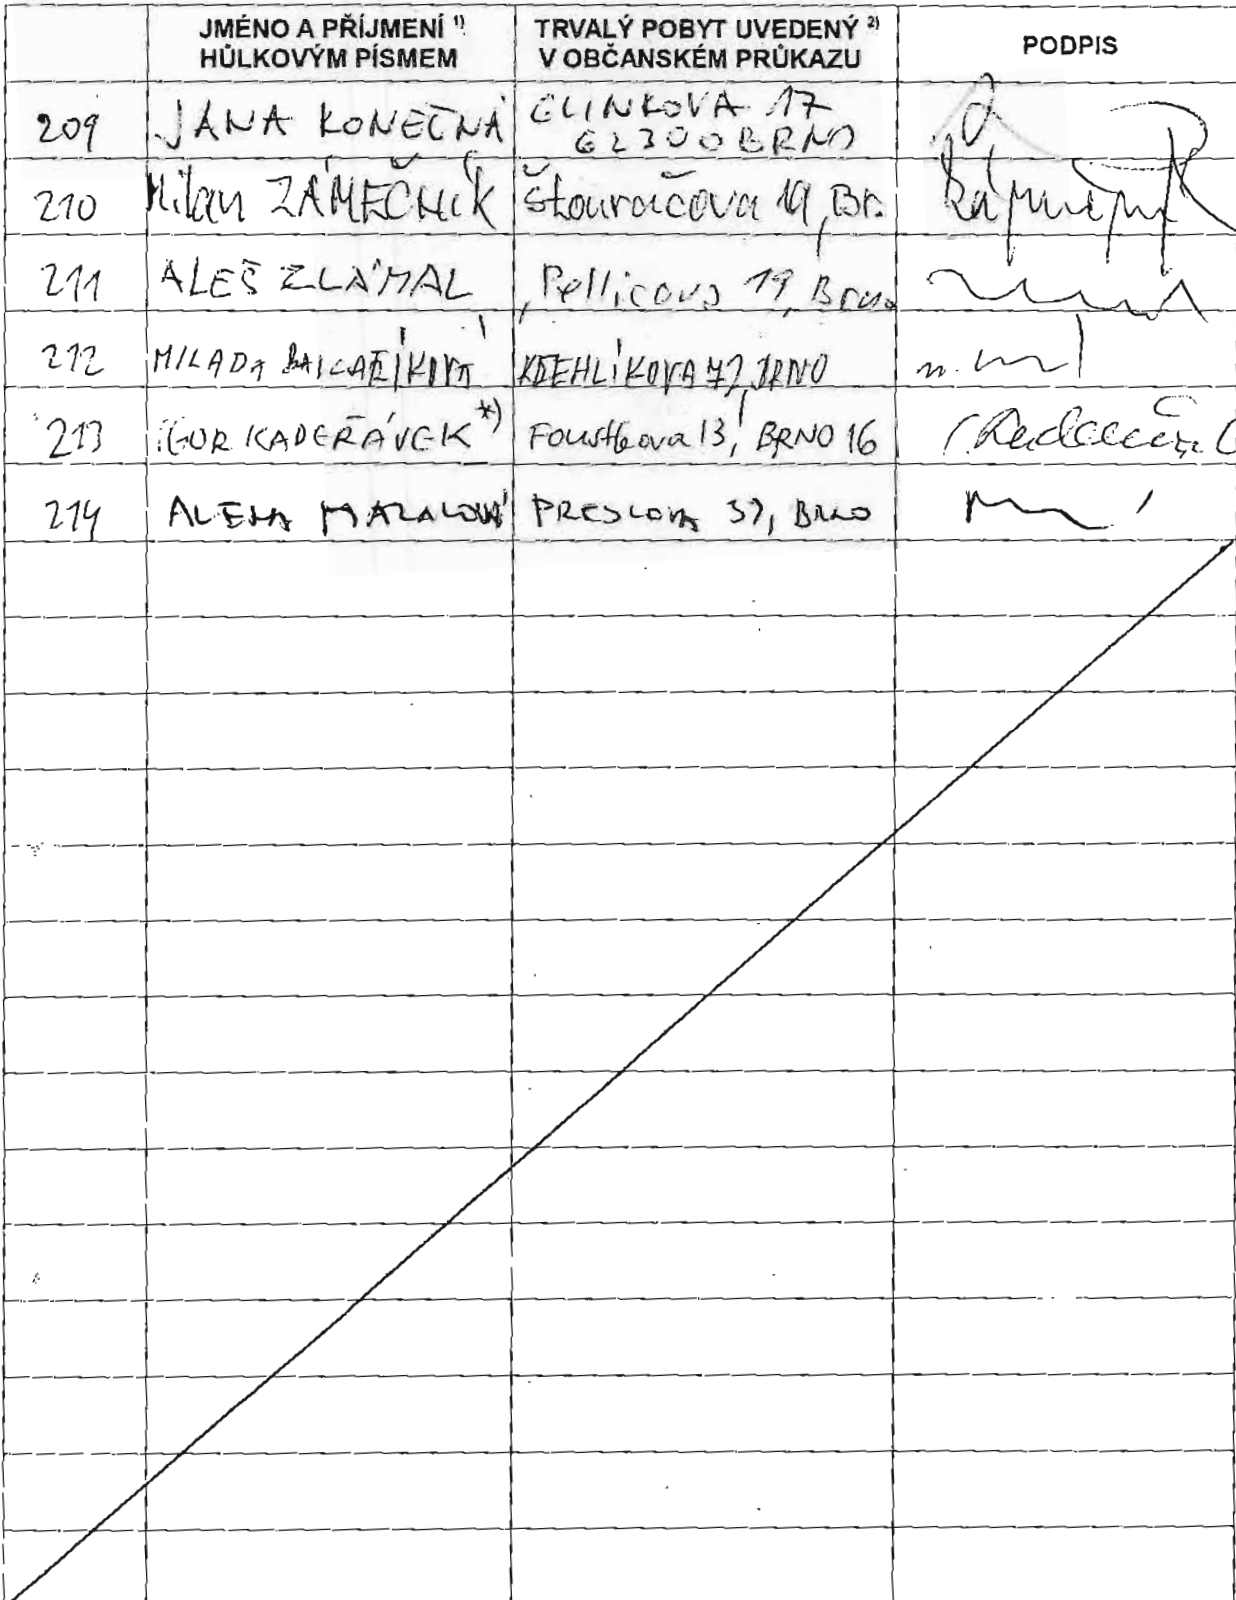 JMÉNO A PŘÍJMENÍ 1)
HŮLKOVÝM PÍSMEM
TRVALÝ POBYT UVEDENÝ 2)
V OBČANSKÉM PRŮKAZU
PODPIS
209 JANA KONEČNÁ 17
62300 BRNO
210 Milan ZÁMEČNÍK Štouračova 19, Br.
211 ALEŠ ZLÁMAL Pellicova 19, Brno
212 MILADA BRNO
213 IGOR KADEŘÁVEK *) 13, BRNO 16
214 ALENA MAZALOVÁ PRESLOVA BRNO